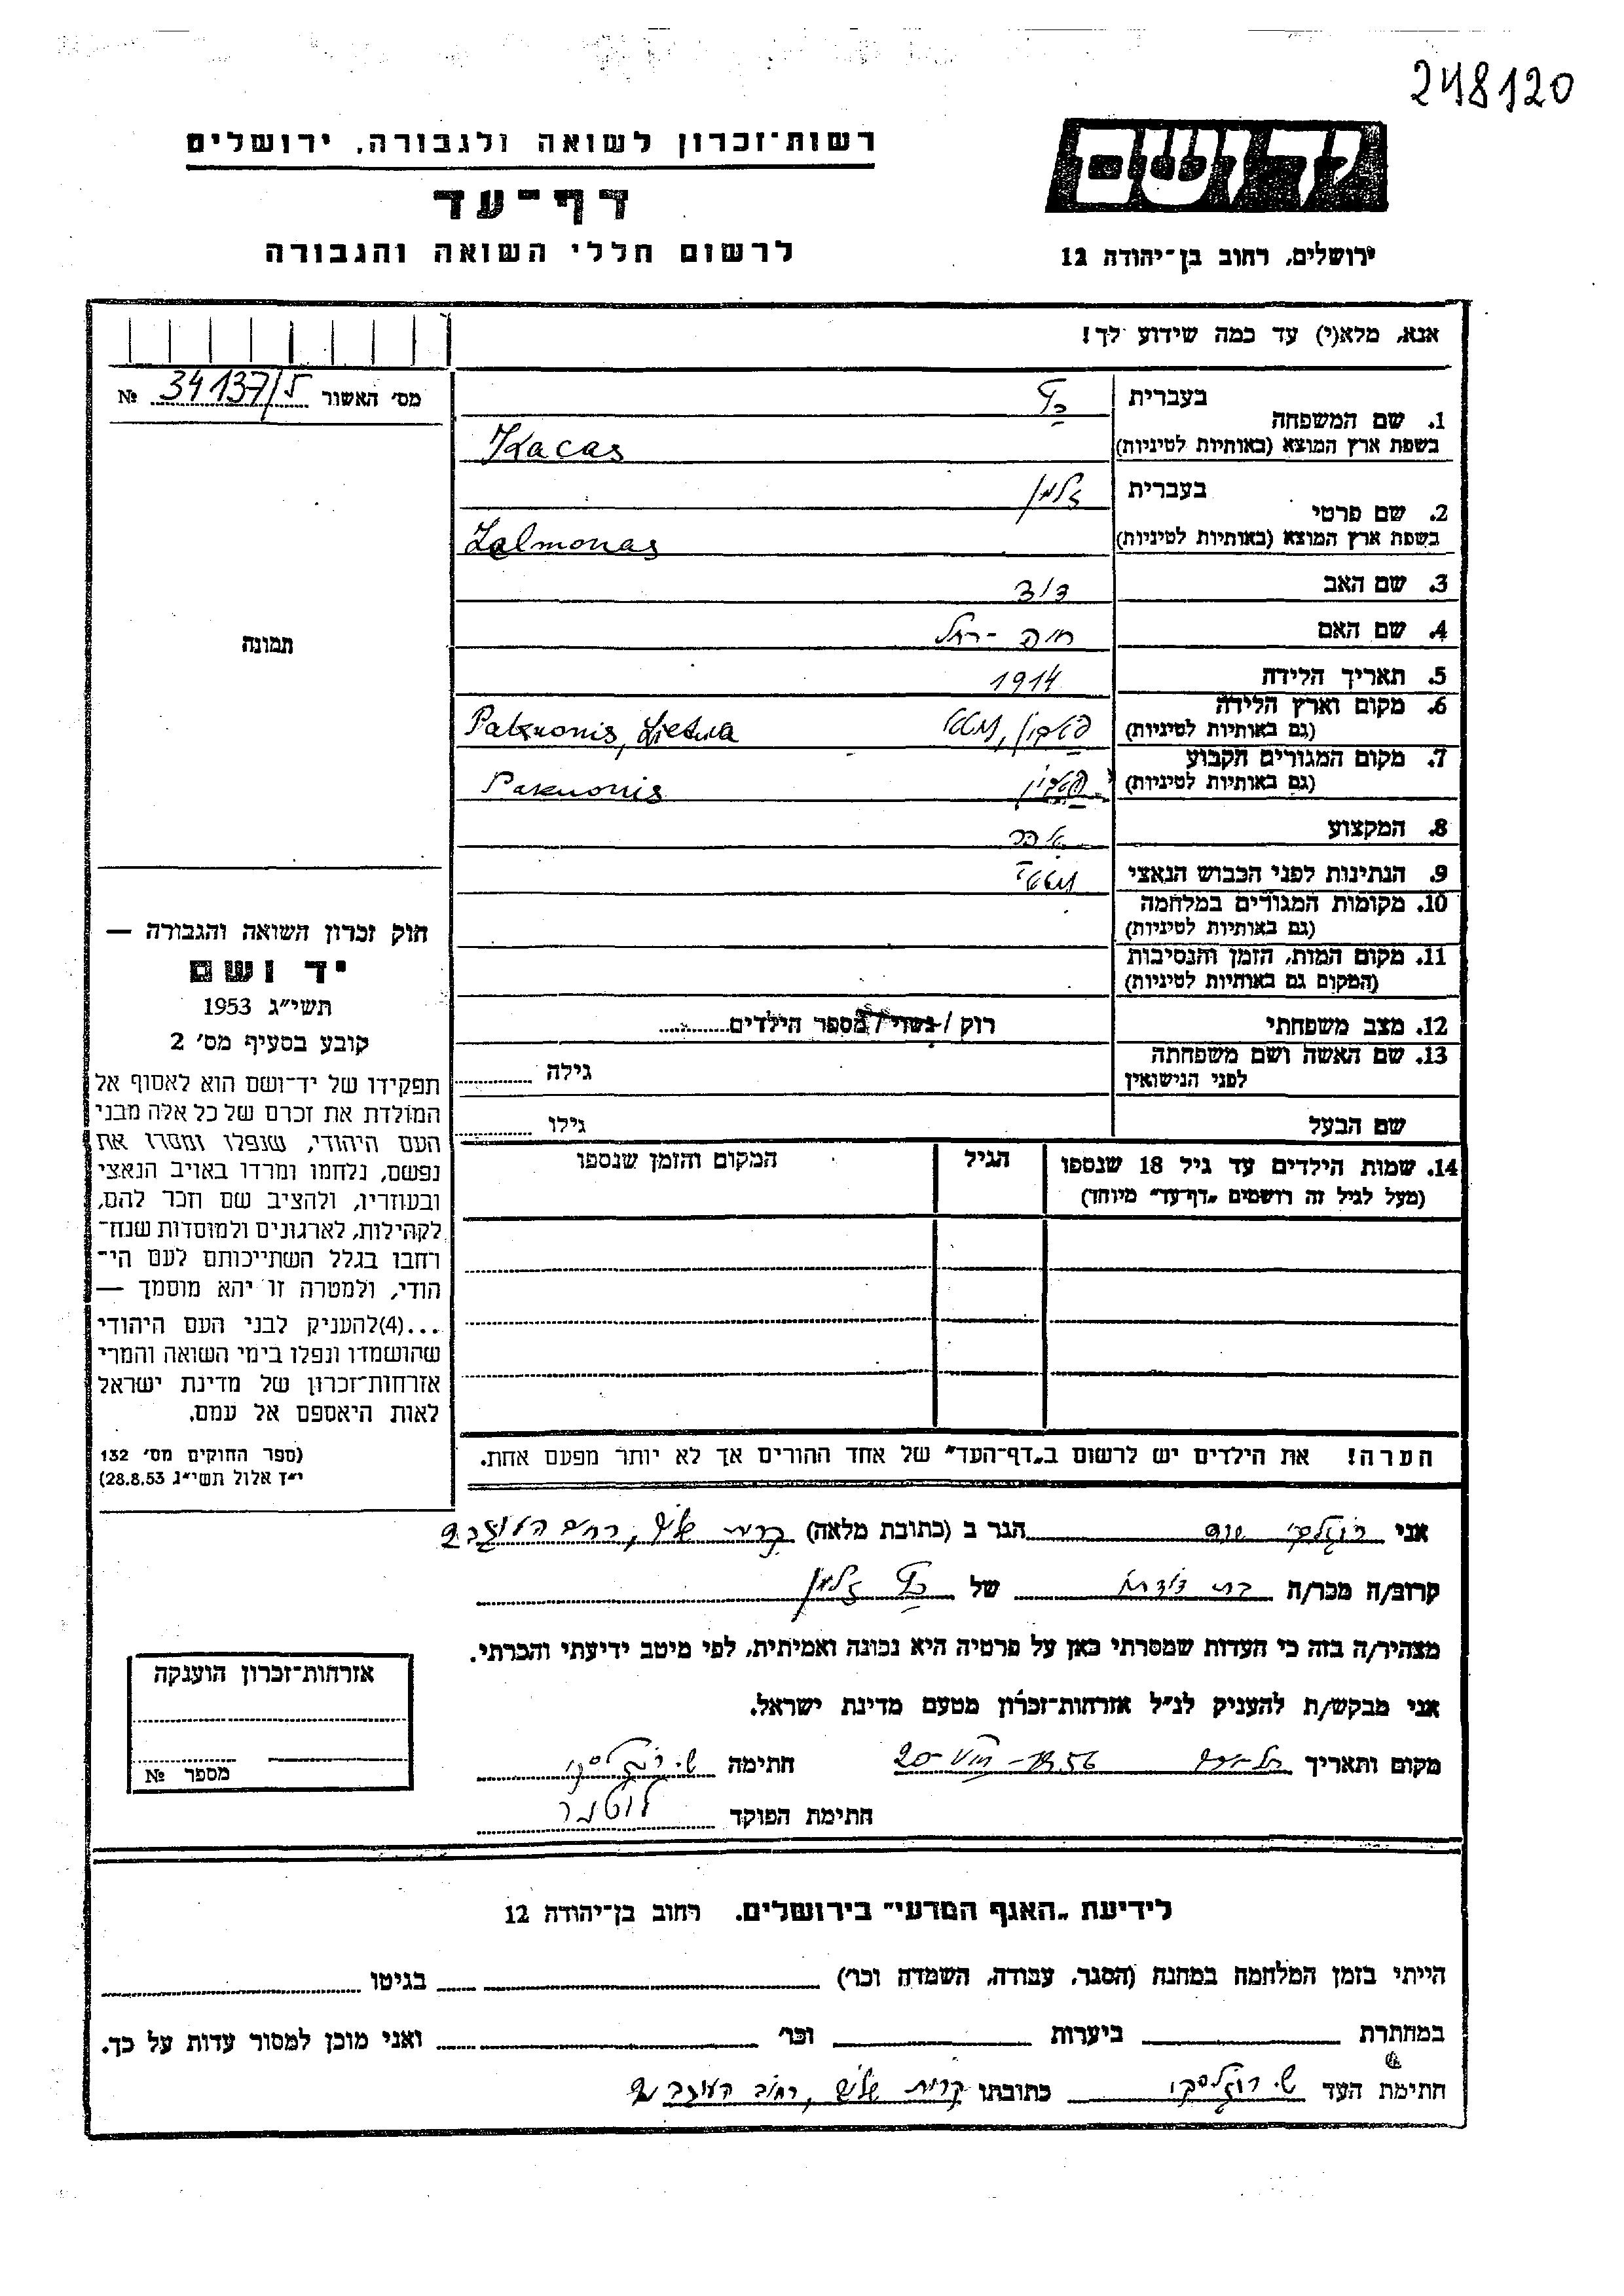 248120
יד ושם
ירושלים, רחוב בן־יהודה 12
רשות־זכרון לשואה ולגבורה, ירושלים
דף־עד
לרשום חללי השואה והגבורה
אנא, מלא(י) עד כמה שידוע לך!
מס׳ האשור 34137/5 №
תמונה
1. שם המשפחה בעברית כץ
בשפת ארץ המוצא (באותיות לטיניות) Kacas
2. שם פרטי בעברית זלמן
בשפת ארץ המוצא (באותיות לטיניות) Zalmonas
3. שם האב דוד
4. שם האם חיה - רחל
5. תאריך הלידה 1914
6. מקום וארץ הלידה (גם באותיות לטיניות) Pakuonis, Lietuva
7. מקום המגורים הקבוע (גם באותיות לטיניות) Pakuonis
8. המקצוע
9. הנתינות לפני הכבוש הנאצי
10. מקומות המגורים במלחמה
(גם באותיות לטיניות)
11. מקום המות, הזמן והנסיבות
(המקום גם באותיות לטיניות)
12. מצב משפחתי רוק / נשוי / מספר הילדים
13. שם האשה ושם משפחתה לפני הנישואין גילה
שם הבעל גילו
14. שמות הילדים עד גיל 18 שנספו
(מעל לגיל זה רושמים „דף־עד״ מיוחד)
הגיל
המקום והזמן שנספו
הערה! את הילדים יש לרשום ב„דף־העד״ של אחד ההורים אך לא יותר מפעם אחת.
חוק זכרון השואה והגבורה —
יד ושם
תשי״ג 1953
קובע בסעיף מס׳ 2
תפקידו של יד־ושם הוא לאסוף אל
המולדת את זכרם של כל אלה מבני
העם היהודי, שנפלו ומסרו את
נפשם, נלחמו ומרדו באויב הנאצי
ובעוזריו, ולהציב שם וזכר להם,
לקהילות, לארגונים ולמוסדות שנח־
רחבו בגלל השתייכותם לעם הי־
הודי, ולמטרה זו יהא מוסמך —
...(4)להעניק לבני העם היהודי
שהושמדו ונפלו בימי השואה והמרי
אזרחות־זכרון של מדינת ישראל
לאות היאספם אל עמם.
(ספר החוקים מס׳ 132
י״ז אלול תשי״ג 28.8.53)
אני הגר ב (כתובת מלאה)
קרוב/ה מכר/ה בת דודתו של כץ זלמן
מצהיר/ה בזה כי העדות שמסרתי כאן על פרטיה היא נכונה ואמיתית, לפי מיטב ידיעתי והכרתי.
אני מבקש/ת להעניק לנ״ל אזרחות־זכרון מטעם מדינת ישראל.
מקום ותאריך 20-VIII-1956 חתימה
חתימת הפוקד
אזרחות־זכרון הוענקה
מספר №
לידיעת „האגף המדעי״ בירושלים. רחוב בן־יהודה 12
הייתי בזמן המלחמה במחנה (הסגר, עבודה, השמדה וכו׳) בגיטו
במחתרת ביערות וכו׳ ואני מוכן למסור עדות על כך.
חתימת העד כתובתו